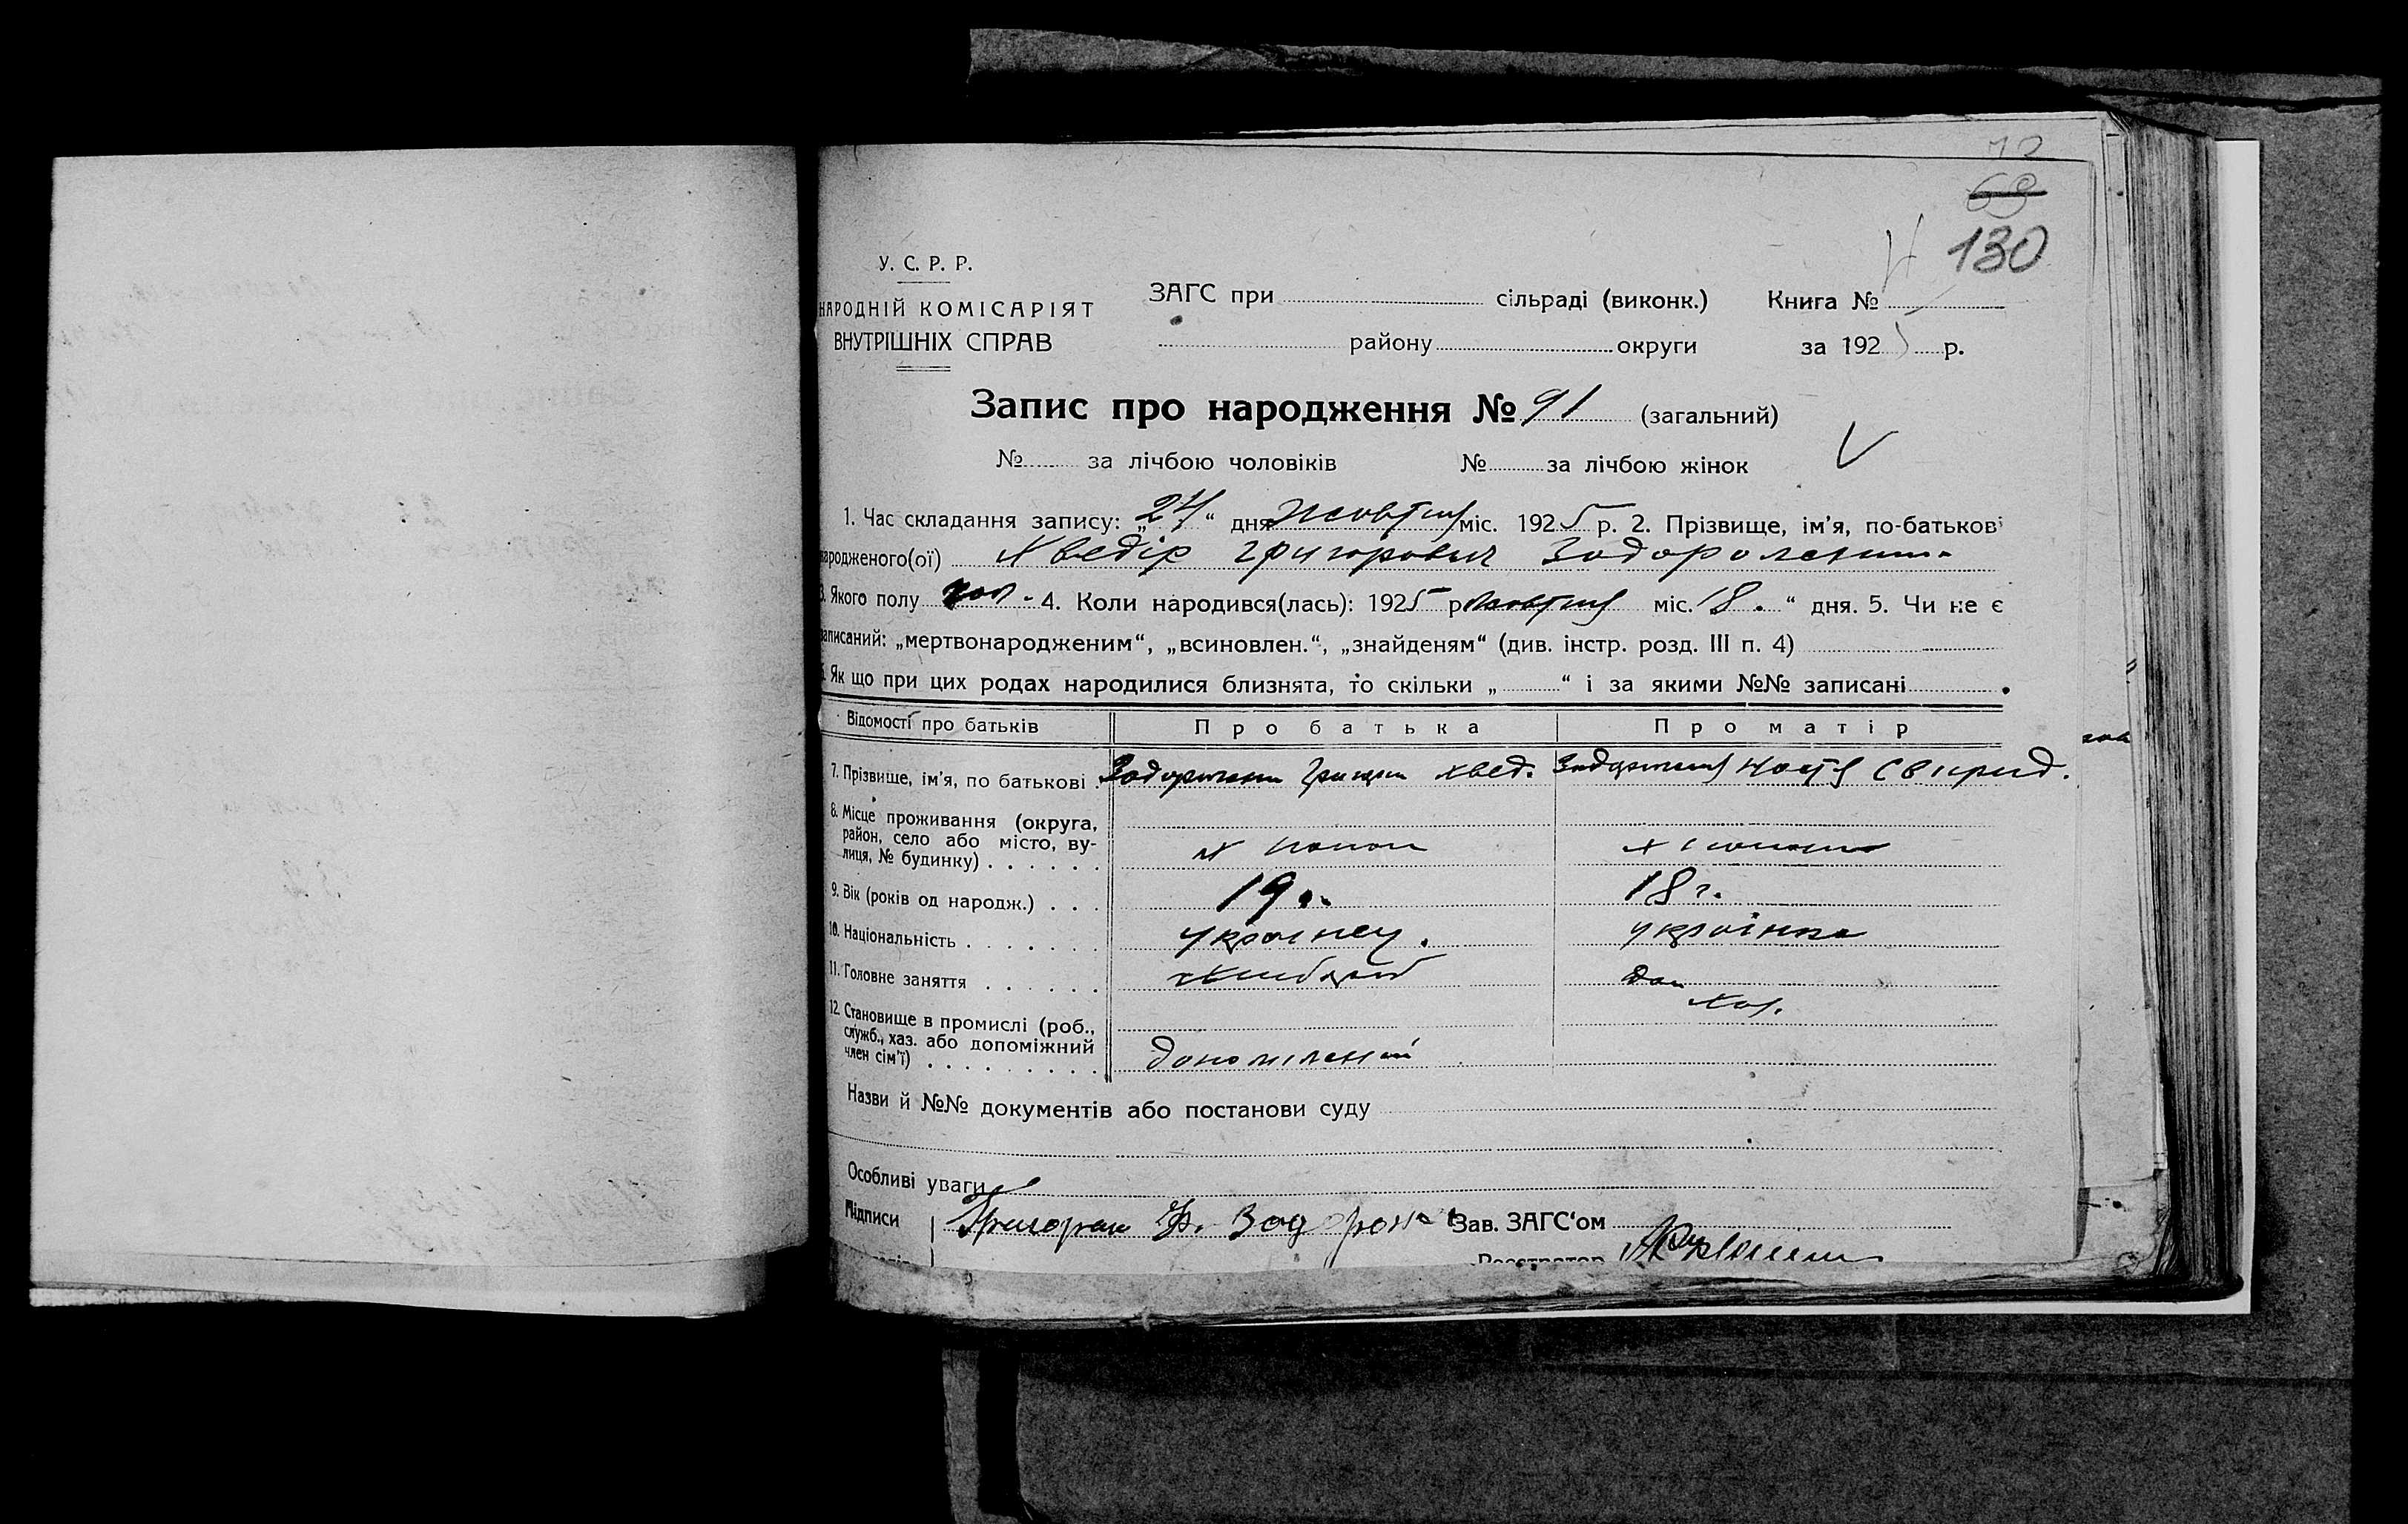 72
69
130
У. С. Р. Р.
НАРОДНІЙ КОМІСАРІЯТ
ВНУТРІШНІХ СПРАВ
ЗАГС при сільраді (виконк.) Книга №
району округи за 1925 р.
Запис про народження № 91 (загальний)
№ за лічбою чоловіків № за лічбою жінок V
1. Час складання запису: „24“ дня жовтня міс. 1925 р. 2. Прізвище, ім'я, по-батькові
народженого(ої) Хведір Григорович Задорожний
3. Якого полу чол. 4. Коли народився(лась): 1925 р жовтня міс. 18. “ дня. 5. Чи не є
записаний: „мертвонародженим“, „всиновлен.“, „знайденям“ (див. інстр. розд. III п. 4)
6. Як що при цих родах народилися близнята, то скільки „ “ і за якими №№ записані
Відомості про батьків Про батька Про матір
7. Прізвище, ім'я, по батькові Задорожний Хвед. Задорожня Настя Свирид.
8. Місце проживання (округа,
район, село або місто, ву-
лиця, № будинку) х
9. Вік (років од народж.) 19 18 г.
10. Національність українец. українка
11. Головне заняття хлібороб дом
хаз.
12. Становище в промислі (роб.,
служб., хаз. або допоміжний
член сім'ї) допоміжний
Назви й №№ документів або постанови суду
Особливі уваги
Підписи Григорий Ф. Задорож Зав. ЗАГС'ом
Реєстратор